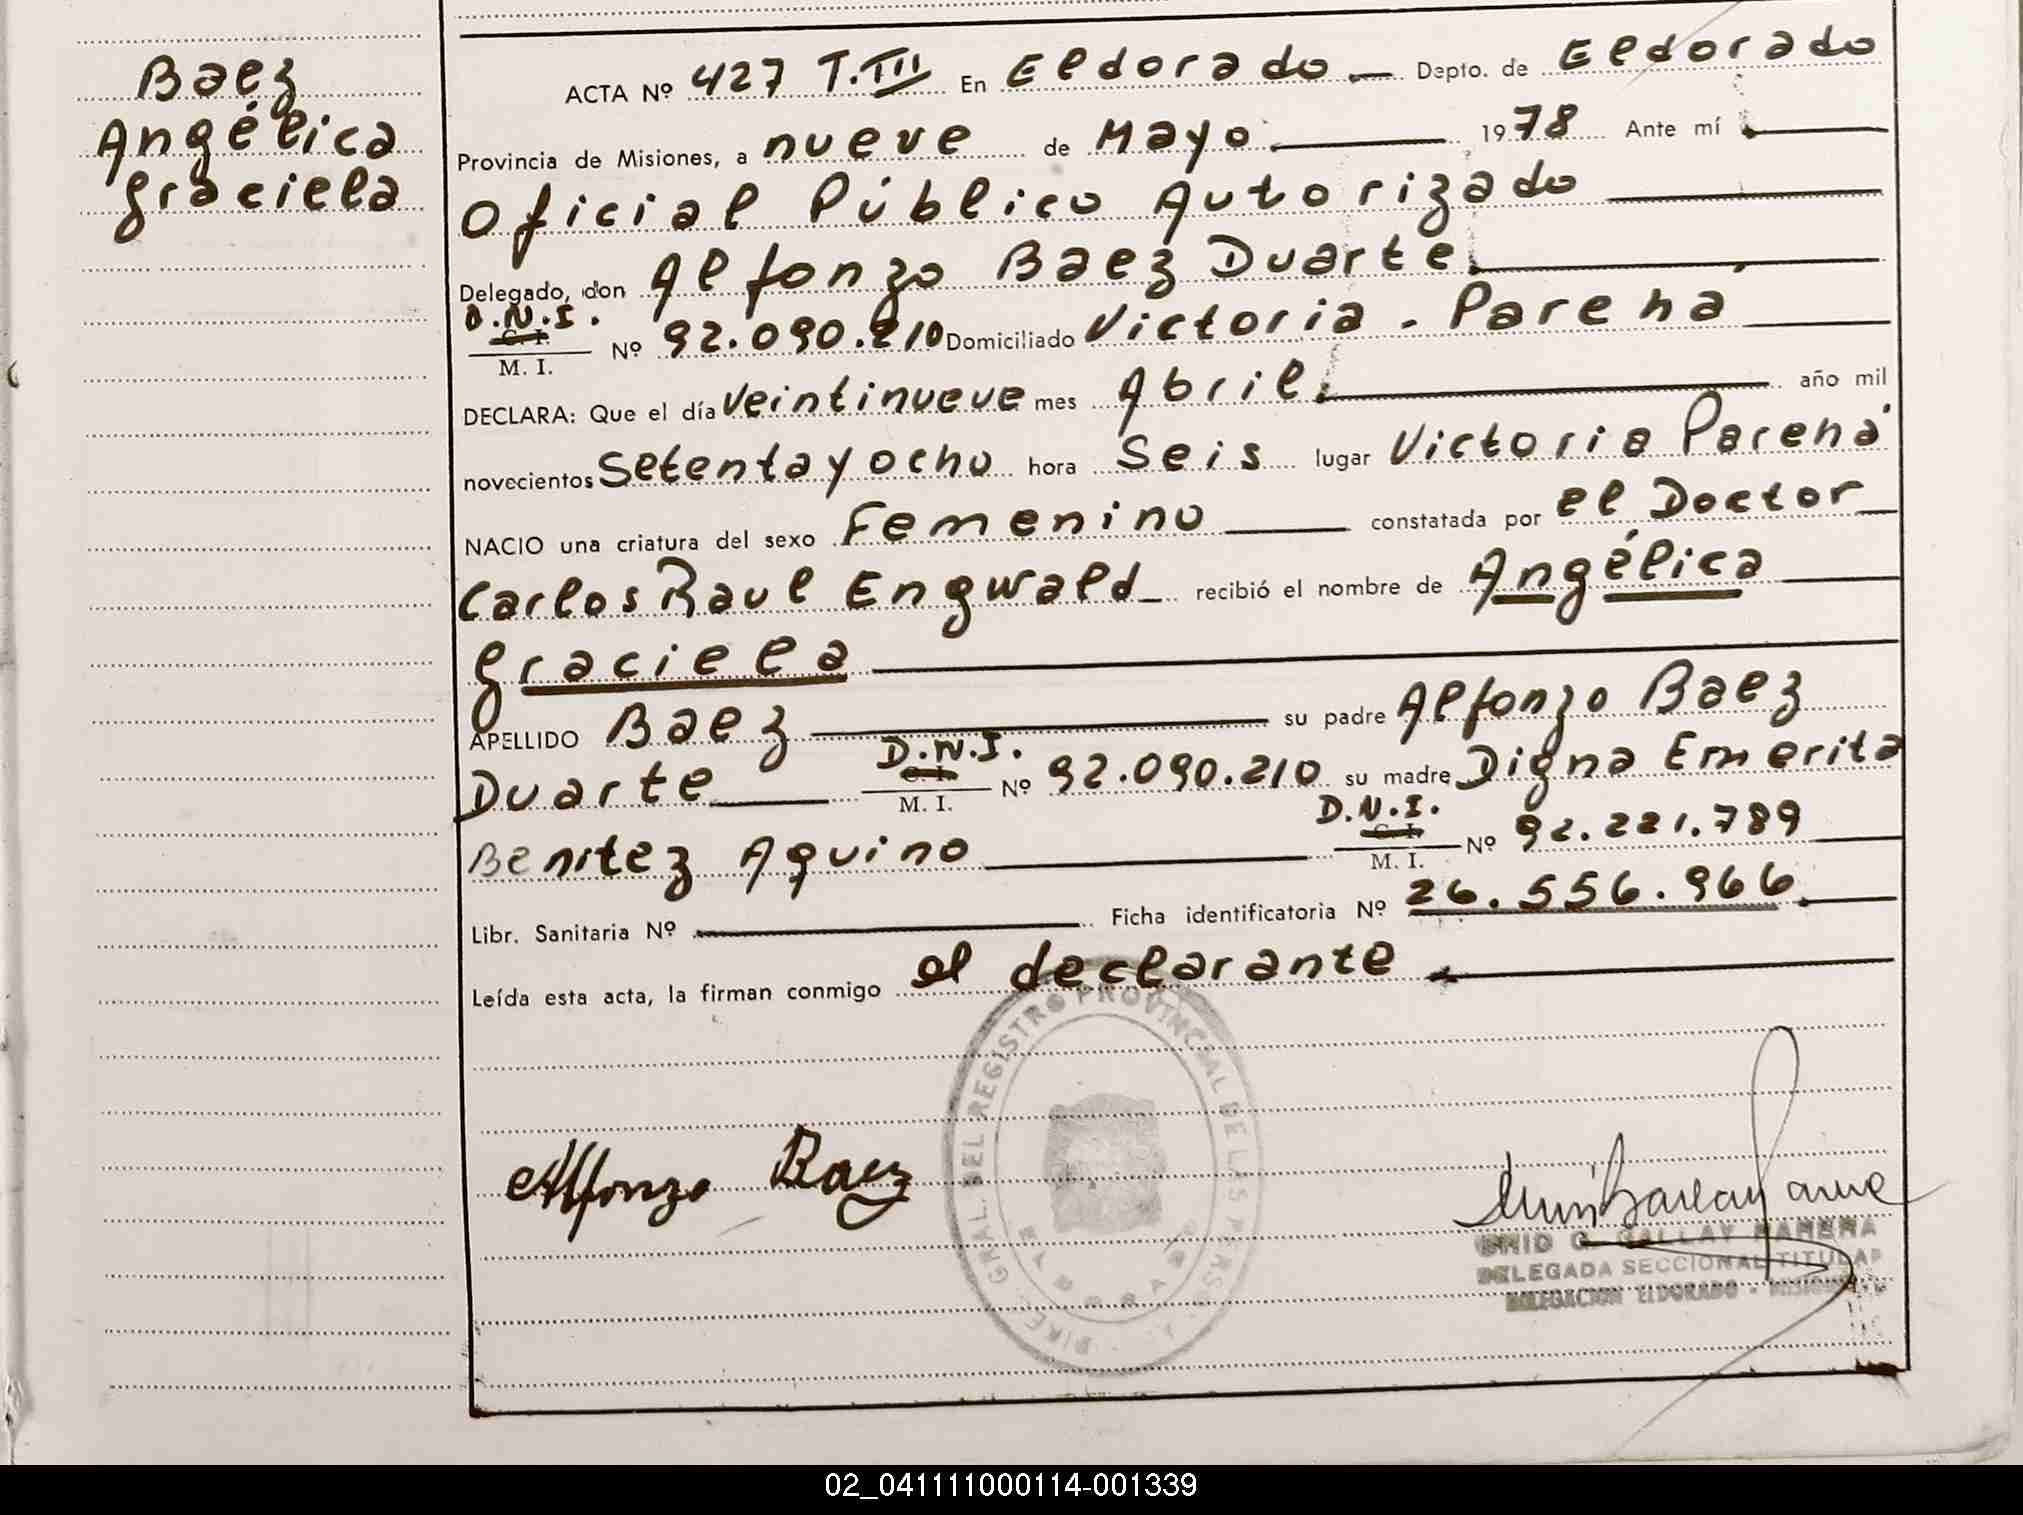 Baez
Angélica
Graciela
ACTA Nº 427 T.III En Eldorado Depto. de Eldorado
Provincia de Misiones, a nueve de Mayo 1978 Ante mí
Oficial Público Autorizado
Delegado, don Alfonzo Baez Duarte
D.N.I.
C. I.
M. I.
Nº 92.090.210 Domiciliado Victoria - Paraná
DECLARA: Que el día veintinueve mes Abril año mil
novecientos Setenta y ocho hora Seis lugar Victoria Paraná
NACIO una criatura del sexo Femenino constatada por el Doctor
Carlos Raul Engwald recibió el nombre de Angélica
Graciela
APELLIDO Baez su padre Alfonzo Baez
Duarte D.N.I. C. I. M. I. Nº 92.090.210 su madre Digna Emerita
Benitez Aquino D.N.I. C. I. M. I. Nº 92.221.789
Libr. Sanitaria Nº Ficha identificatoria Nº 26.556.966
Leída esta acta, la firman conmigo el declarante
DIREC. GRAL. DEL REGISTRO PROVINCIAL DE LAS PERSO
Alfonzo Baez
DELEGADA SECCIONAL TITULAR
DELEGACION ELDORADO - MISIONES
02_041111000114-001339